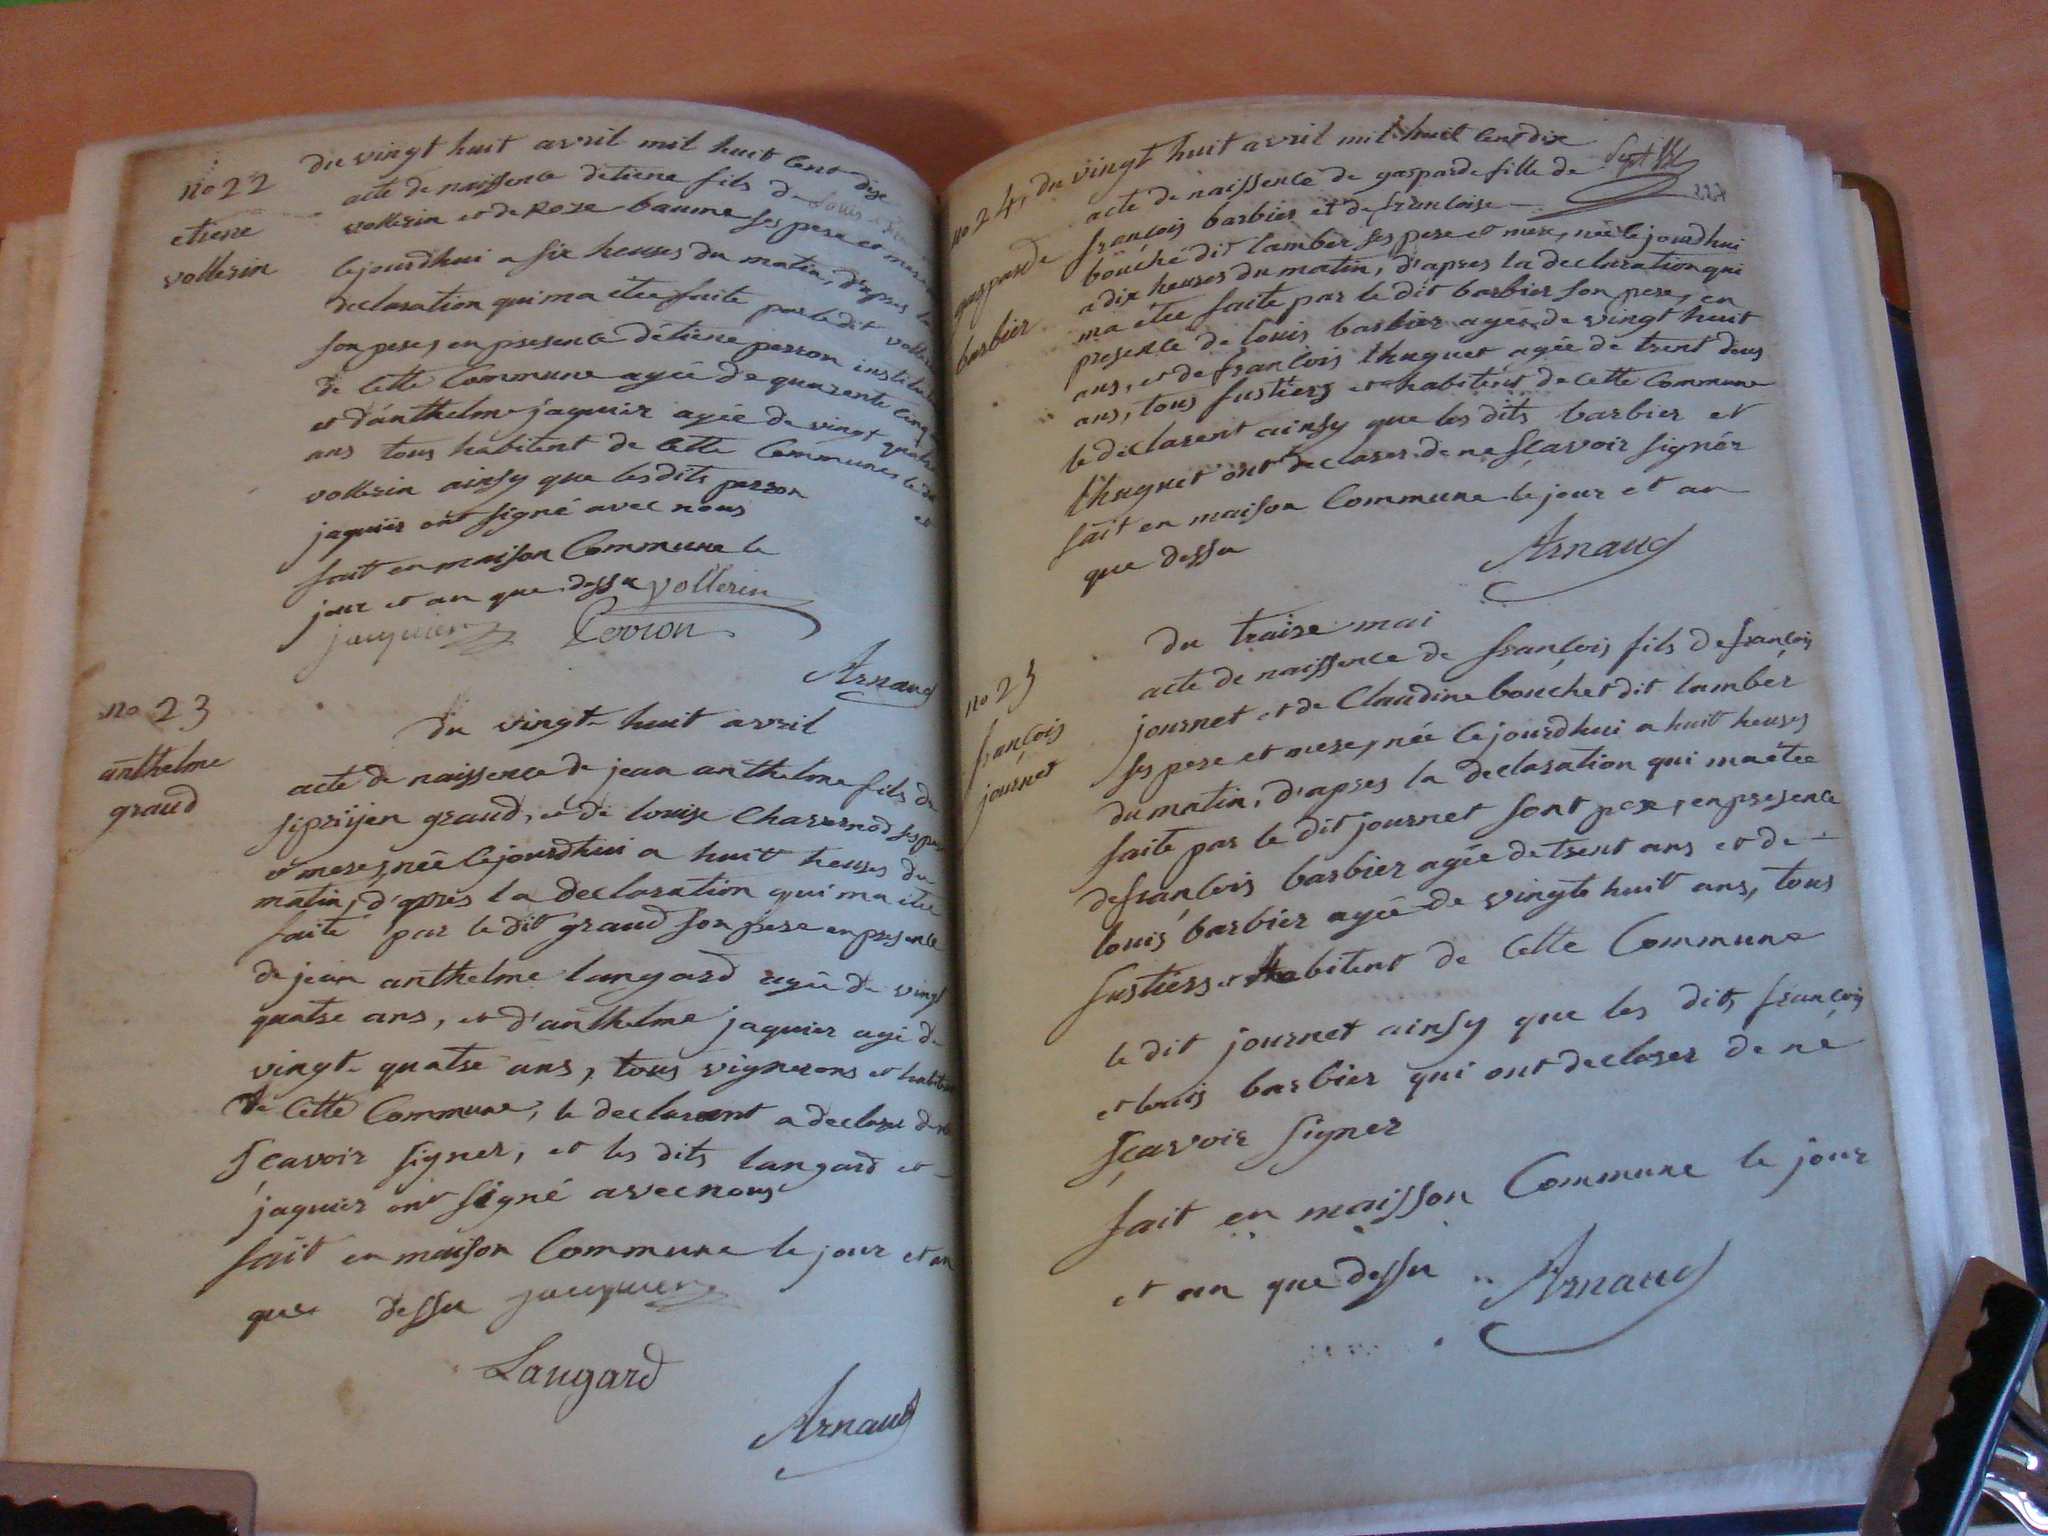 no 22
etiene
vollerin
du vingt huit avril mil huit cent dix
acte de naissence détiene fils de louis
vollerin et de Roze baume ses pere et mere
cejourdhui a six heures du matin, d'apres la
declaration qui ma etée faite par le dit vollerin
son pere, en presence détiene perron
de Cette Commune agée de quarente cinq
et d'anthelme jaquier agée de vingt quatre
ans tous habitent de Cette Commune, le dit
vollerin ainsy que les dits perron et
jaquier ont signé avec nous
fait en maison Commune le
jour et an que dessu vollerin
jacquier Perron
Arnaud
no 23
anthelme
graud
du vingt huit avril
acte de naissence de jean anthelme fils de
siprijen graud, et de louise Charernod ses pere
et mere, née cejourdhui a huit heures du
matin, d'après la declaration qui ma etee
faite par le dit graud son pere en presence
de jean anthelme langard agée de vingt
quatre ans, et d'anthelme jaquier agé de
vingt quatre ans, tous vignerons et habitent
de Cette Commune, le declarent a declaré de ne
sçavoir signer, et les dits langard et
jaquier ont signé avec nous
fait en maison Commune le jour et an
que dessu jacquier
Langard
Arnaud
227
no 24, du vingt huit avril mil huit cent dix
gasparde
barbier
acte de naissence de gasparde fille de
françois barbier et de françoise
bouché dit lamber ses pere et mere, née cejourdhui
a dix heures du matin, d'apres la declaration qui
ma etée faite par le dit barbier son pere, en
presence de louis barbier agée de vingt huit
ans, et de françois thuguet agée de trent deus
ans, tous fustiers et habitent de Cette Commune
le declarent ainsy que les dits barbier et
thuguet ont declarer de ne sçavoir signér
fait en maison Commune le jour et an
que dessu
Arnaud
no 25
françois
journet
du traize mai
acte de naissence de françois fils de françois
journet et de Claudine bouchet dit lambér
ses pere et mere, née cejourdhui a huit heures
du matin, d'apres la declaration qui ma etée
faite par le dit journet sont pere, en presence
de françois barbier agée de trent ans et de
louis barbier agée de vingte huit ans, tous
fustiers et habitent de Cette Commune
le dit journet ainsy que les dits françois
et louis barbier qui ont declarer de ne
sçavoir signer
fait en maisson Commune le jour
et an que dessu
Arnaud